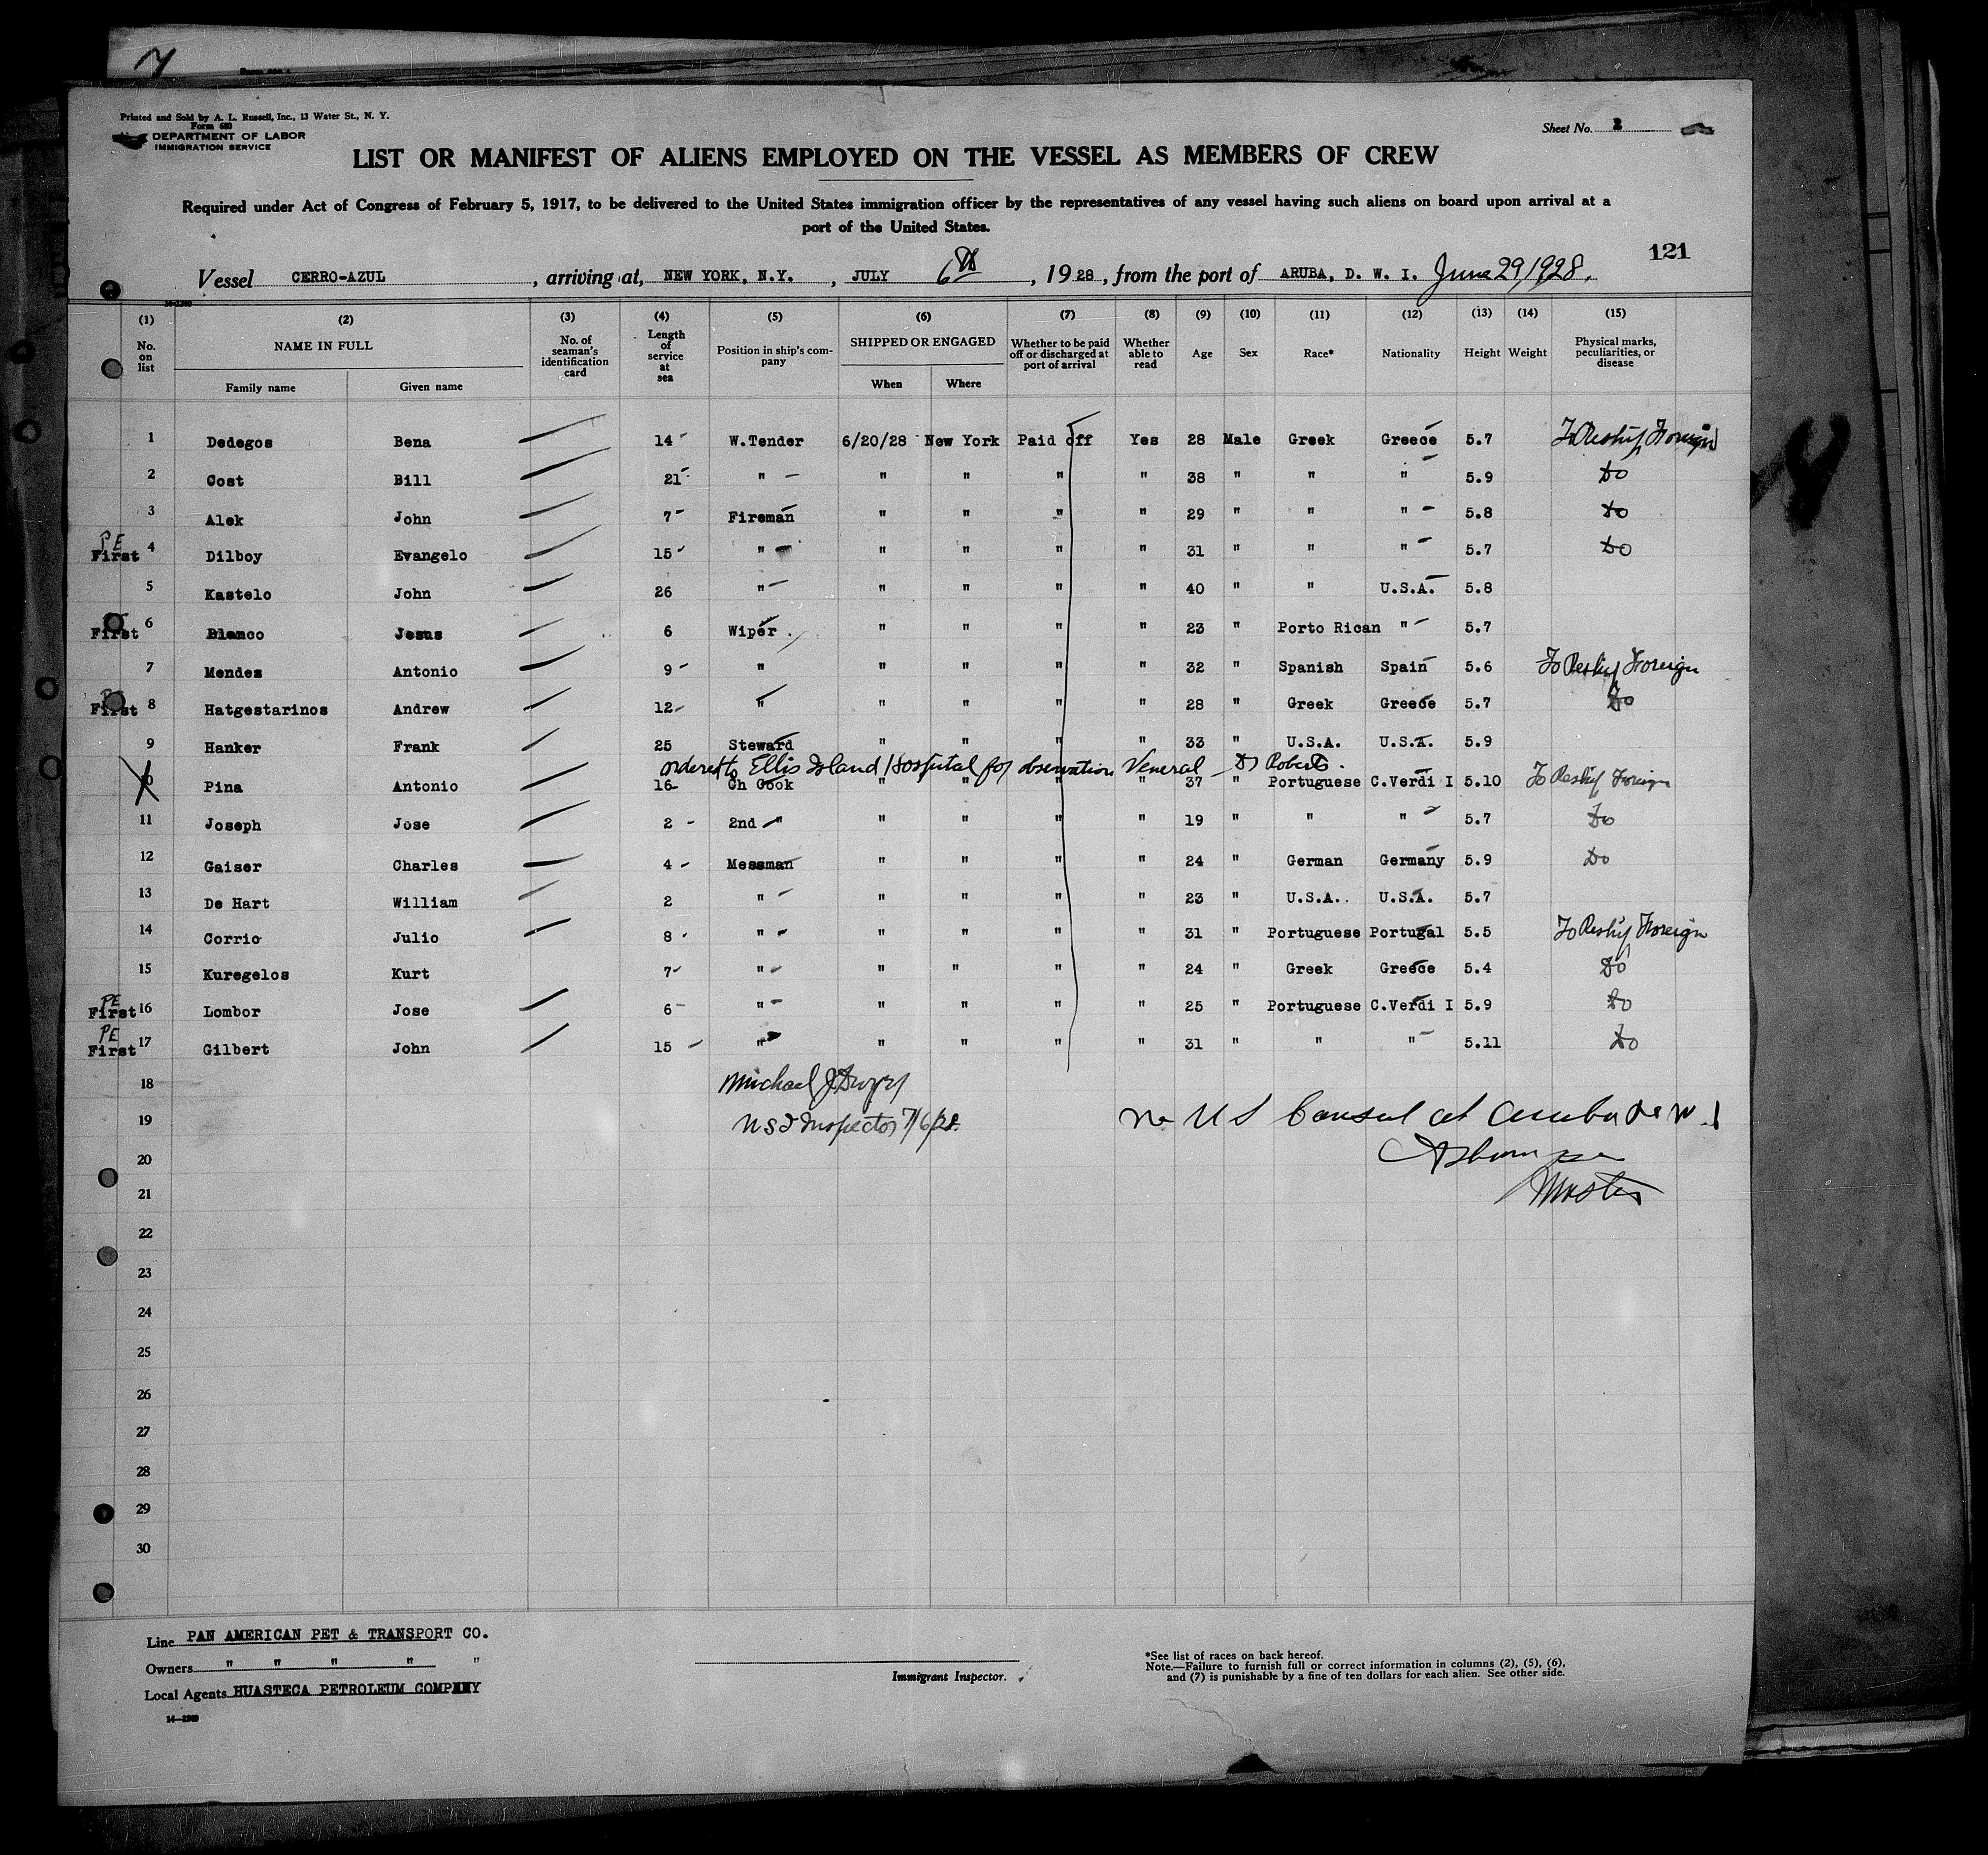 Printed and Sold by A. L. Russell, Inc., 13 Water St., N. Y.
Form 680
DEPARTMENT OF LABOR
IMMIGRATION SERVICE
Sheet No. 2
LIST OR MANIFEST OF ALIENS EMPLOYED ON THE VESSEL AS MEMBERS OF CREW
Required under Act of Congress of February 5, 1917, to be delivered to the United States immigration officer by the representatives of any vessel having such aliens on board upon arrival at a
port of the United States.
121
Vessel CERRO-AZUL, arriving at, NEW YORK, N.Y., JULY 6th, 1928, from the port of ARUBA, D. W. I. June 29, 1928.
(1) (2) (3) (4) (5) (6) (7) (8) (9) (10) (11) (12) (13) (14) (15)
No. on list NAME IN FULL Family name Given name No. of seaman's identification card Length of service at sea Position in ship's company SHIPPED OR ENGAGED When Where Whether to be paid off or discharged at port of arrival Whether able to read Age Sex Race* Nationality Height Weight Physical marks, peculiarities, or disease
1 Dedegos Bena 14 W.Tender 6/20/28 New York Paid off Yes 28 Male Greek Greece 5.7 To Reship Foreign
2 Cost Bill 21 " " " " " 38 " " " 5.9 Do
3 Alek John 7 Fireman " " " " 29 " " " 5.8 Do
PE
First 4 Dilboy Evangelo 15 " " " " " 31 " " " 5.7 Do
5 Kastelo John 26 " " " " " 40 " " U.S.A. 5.8
First 6 Blanco Jesus 6 Wiper " " " " 23 " Porto Rican " 5.7
7 Mendes Antonio 9 " " " " " 32 " Spanish Spain 5.6 To Reship Foreign
First 8 Hatgestarinos Andrew 12 " " " " " 28 " Greek Greece 5.7 Do
9 Hanker Frank 25 Steward " " " " 33 " U.S.A. U.S.A. 5.9
ordered to Ellis Island Hospital for observation Veneral Dr Roberts.
10 Pina Antonio 16 Ch Cook " " " " 37 " Portuguese C.Verdi I 5.10 To Reship Foreign
11 Joseph Jose 2 2nd " " " " " 19 " " " 5.7 Do
12 Gaiser Charles 4 Messman " " " " 24 " German Germany 5.9 Do
13 De Hart William 2 " " " " " 23 " U.S.A.. U.S.A. 5.7
14 Corrio Julio 8 " " " " " 31 " Portuguese Portugal 5.5 To Reship Foreign
15 Kuregelos Kurt 7 " " " " " 24 " Greek Greece 5.4 Do
PE
First 16 Lombor Jose 6 " " " " " 25 " Portuguese C.Verdi I 5.9 Do
PE
First 17 Gilbert John 15 " " " " " 31 " " " 5.11 Do
18 Michael J
19 U S I Inspector 7/6/28. No U S Consul at Aruba D W I
20
21 Master
22
23
24
25
26
27
28
29
30
Line PAN AMERICAN PET & TRANSPORT CO.
Owners " " " " "
Local Agents HUASTECA PETROLEUM COMPANY
14—1240
Immigrant Inspector.
*See list of races on back hereof.
Note.—Failure to furnish full or correct information in columns (2), (5), (6),
and (7) is punishable by a fine of ten dollars for each alien. See other side.